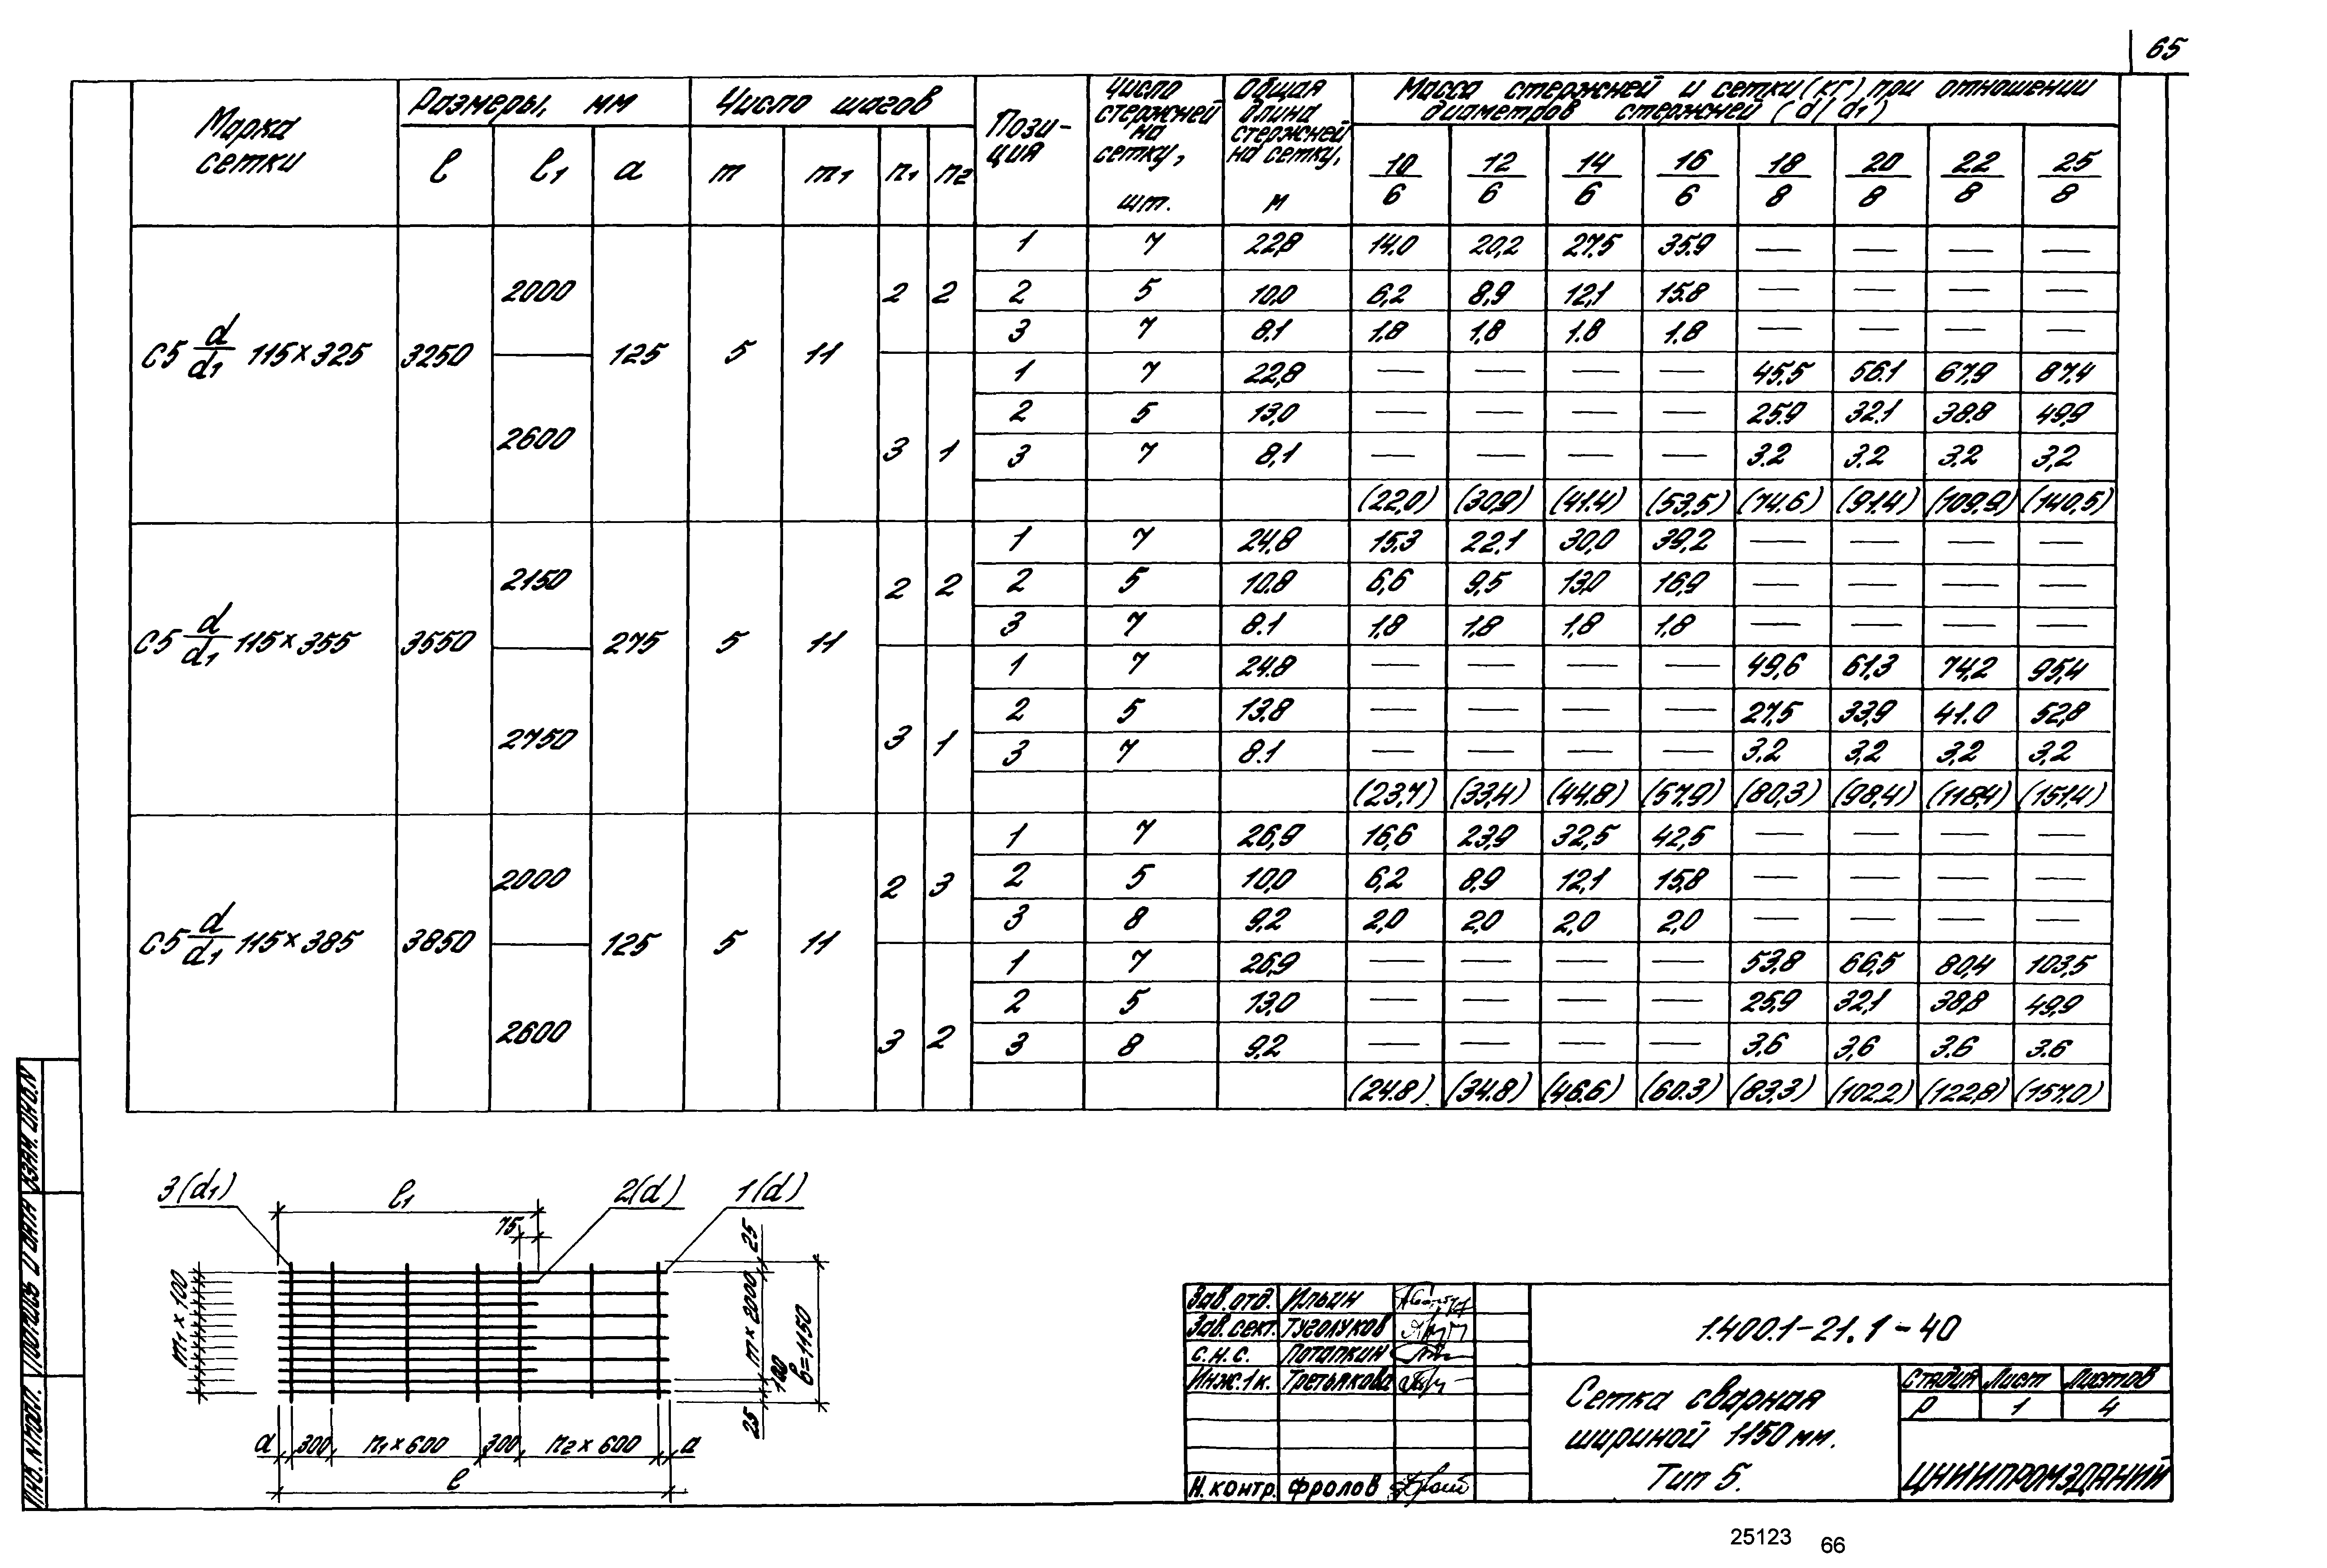 65
Марка сетки
Размеры, мм
Число шагов
Пози-ция
Число стержней на сетку, шт.
Общая длина стержней на сетку, м
Масса стержней и сетки (кг) при отношении диаметров стержней (d/d₁)
l l₁ a m m₁ n₁ n₂ 10/6 12/6 14/6 16/6 18/8 20/8 22/8 25/8
С5 d/d₁ 115×325 3250 125 5 11
2000 2 2
1 7 22,8 14.0 20,2 27.5 35.9 — — — —
2 5 10.0 6,2 8,9 12,1 15.8 — — — —
3 7 8,1 1,8 1,8 1.8 1.8 — — — —
2600 3 1
1 7 22,8 — — — — 45.5 56.1 67,9 87.4
2 5 13,0 — — — — 25.9 32.1 38.8 49,9
3 7 8,1 — — — — 3.2 3.2 3.2 3,2
(22,0) (30,9) (41.4) (53,5) (74.6) (91.4) (109,9) (140,5)
С5 d/d₁ 115×355 3550 275 5 11
2150 2 2
1 7 24,8 15.3 22.1 30,0 39,2 — — — —
2 5 10.8 6,6 9,5 13,0 16,9 — — — —
3 7 8.1 1,8 1,8 1,8 1,8 — — — —
2750 3 1
1 7 24.8 — — — — 49,6 61.3 74,2 95,4
2 5 13.8 — — — — 27,5 33,9 41.0 52,8
3 7 8.1 — — — — 3.2 3,2 3,2 3,2
(23,7) (33,4) (44.8) (57,9) (80,3) (98,4) (118,4) (151,4)
С5 d/d₁ 115×385 3850 125 5 11
2000 2 3
1 7 26,9 16,6 23,9 32,5 42,5 — — — —
2 5 10,0 6,2 8,9 12,1 15,8 — — — —
3 8 9,2 2,0 2,0 2,0 2,0 — — — —
2600 3 2
1 7 26,9 — — — — 53,8 66,5 80,4 103,5
2 5 13,0 — — — — 25,9 32,1 38,8 49,9
3 8 9,2 — — — — 3,6 3,6 3.6 3.6
(24.8) (34.8) (46.6) (60.3) (83,3) (102.2) (122,8) (157.0)
3(d₁) l₁ 2(d) 1(d)
75
25
m₁×100
m×2000
100
b=1150
25
a 300 n₁×600 300 n₂×600 a
l
Взам. инв.N
Подпись и дата
Инв. N подл.
Зав. отд. Ильин
Зав. сект. Туголуков
С.н.с. Потапкин
Инж.1к. Третьякова
Н.контр. Фролов
1.400.1-21.1-40
Сетка сварная
шириной 1150 мм.
Тип 5.
Стадия Лист Листов
Р 1 4
ЦНИИПРОМЗДАНИЙ
25123 66